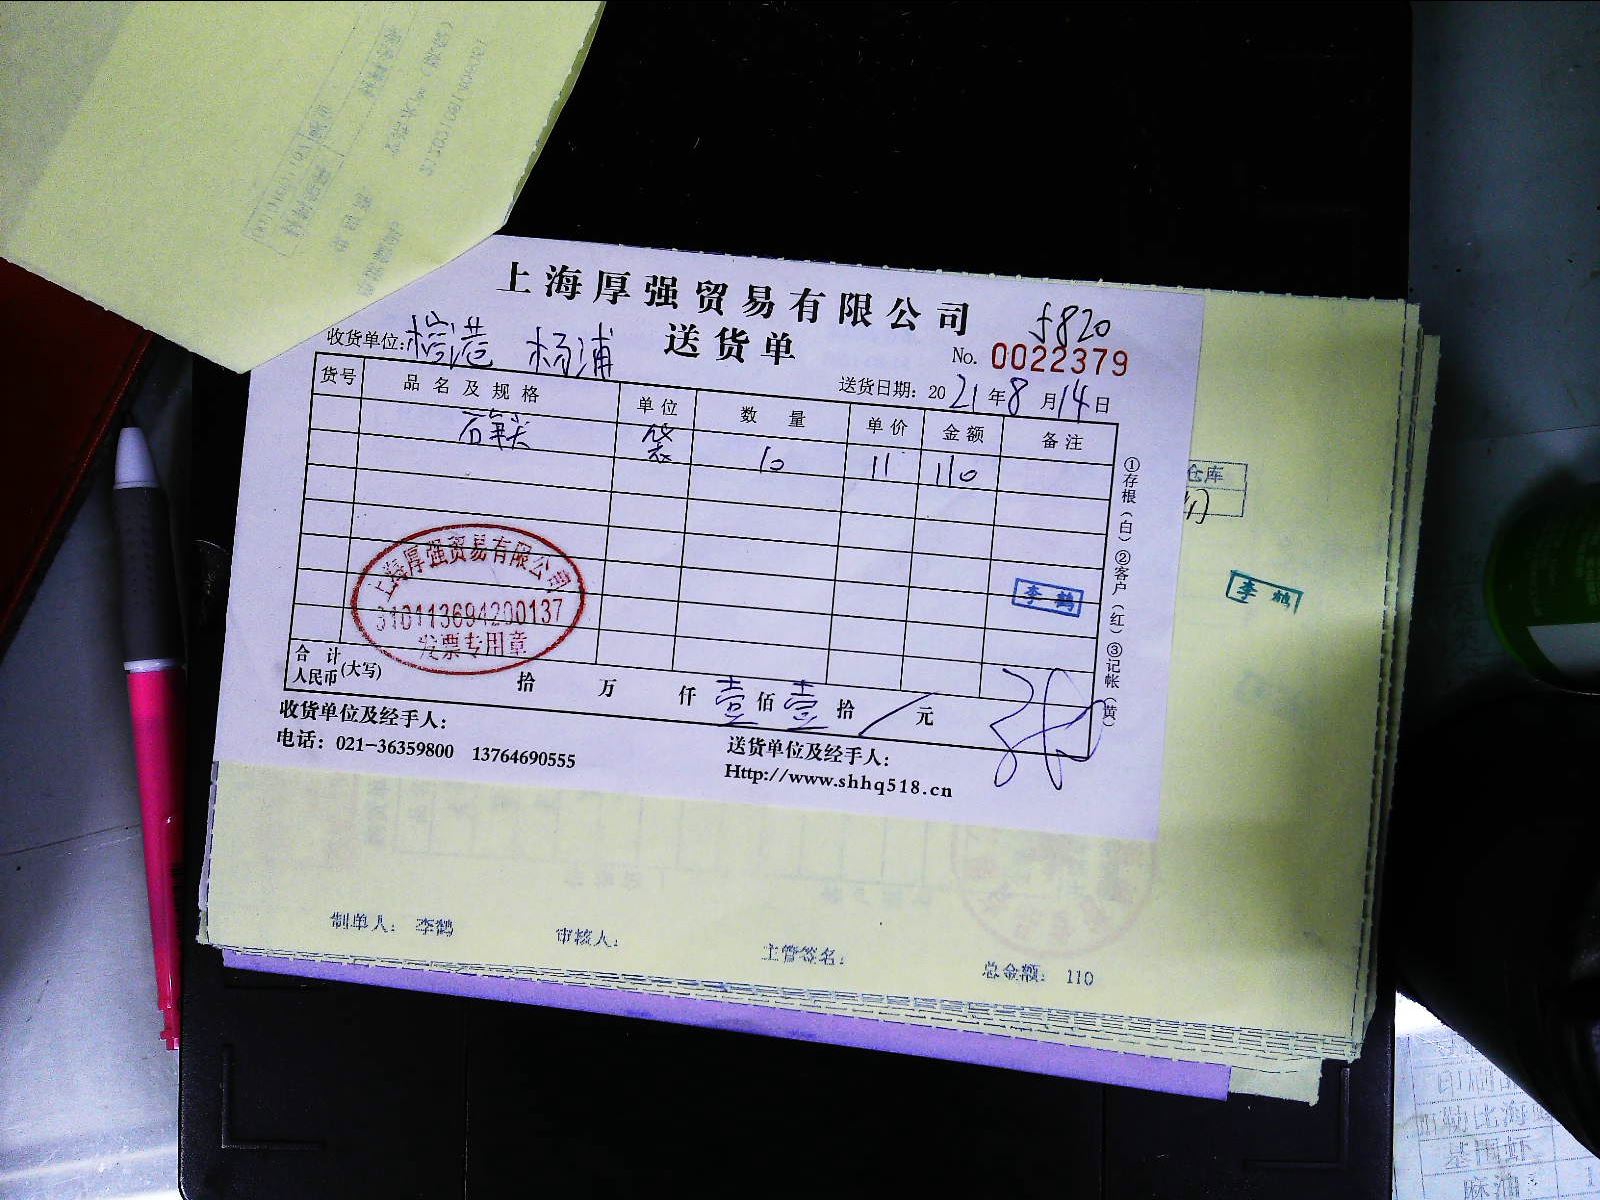 上海厚强贸易有限公司
送货单
f820
收货单位: 杨浦
No. 0022379
送货日期: 2021年8月14日
货号 品名及规格 单位 数量 单价 金额 备注
袋 10 11 110
①存根(白) ②客户(红) ③记帐(黄)
上海厚强贸易有限公司
310113694200137
发票专用章
李鹤
合计
人民币(大写) 拾 万 仟 壹 佰 壹 拾 / 元
收货单位及经手人:
送货单位及经手人:
电话: 021-36359800 13764690555
Http://www.shhq518.cn
仓库
李鹤
制单人: 李鹤 审核人: 主管签名: 总金额: 110
基围虾
麻油